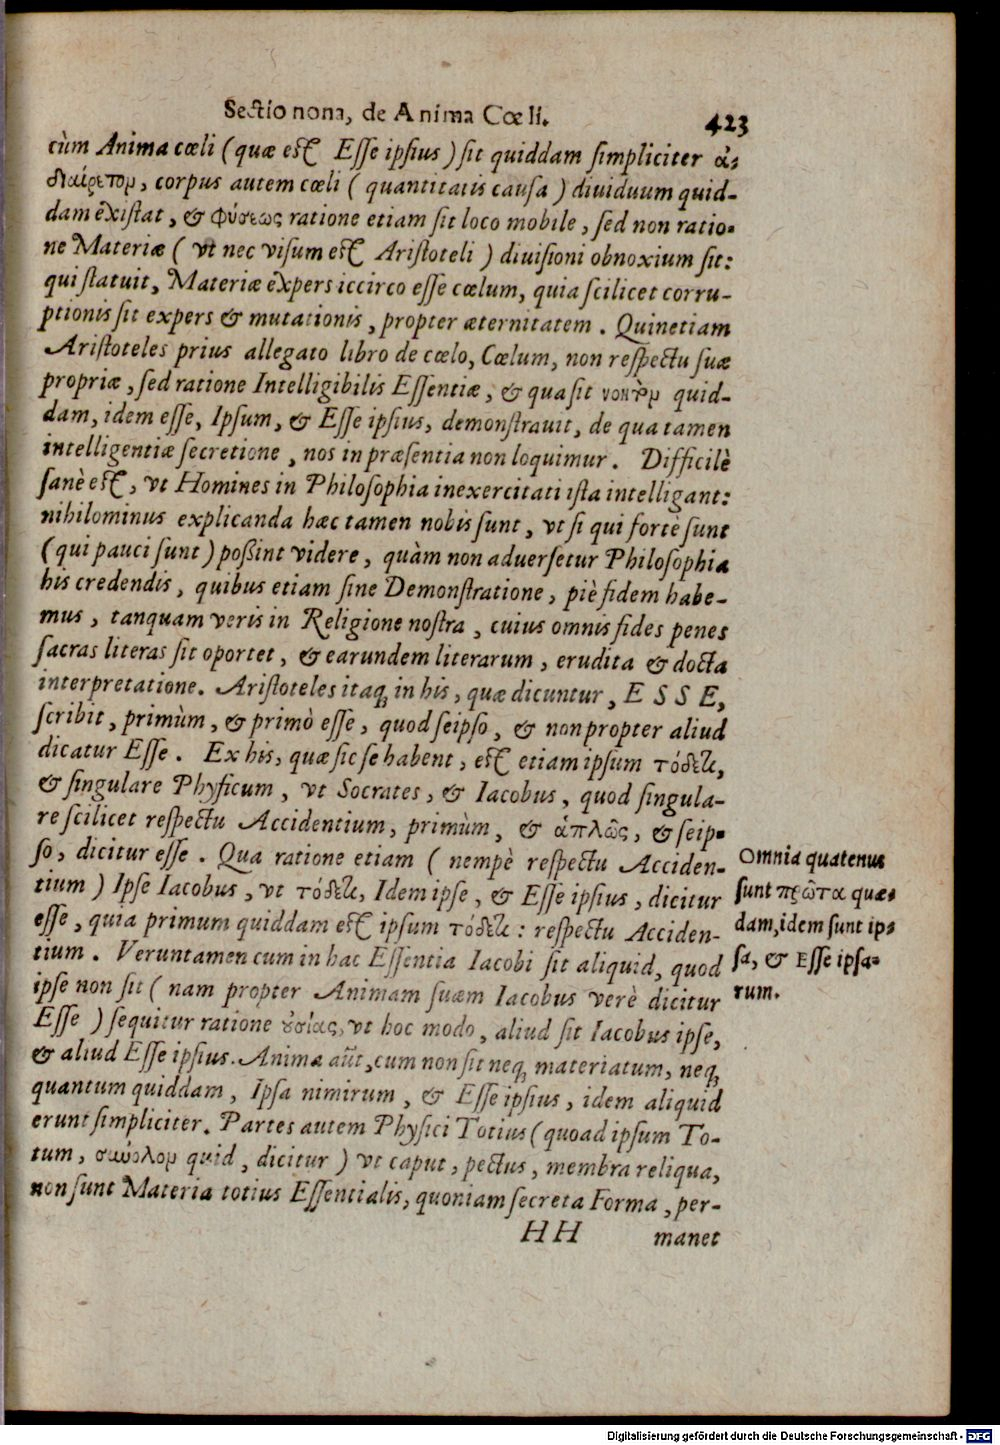 Sectio nona, de Anima Cœli. 423
cùm Anima cœli (quæ est Esse ipsius) sit quiddam simpliciter ἀ-
διαίρετομ, corpus autem cœli (quantitatis causa) diuiduum quid-
dam existat, & φύσεως ratione etiam sit loco mobile, sed non ratio-
ne Materiæ (vt nec visum est Aristoteli) diuisioni obnoxium sit:
qui statuit, Materiæ expers iccirco esse cœlum, quia scilicet corru-
ptionis sit expers & mutationis, propter æternitatem. Quinetiam
Aristoteles prius allegato libro de cœlo, Cœlum, non respectu suæ
propriæ, sed ratione Intelligibilis Essentiæ, & quasit νοητὸμ quid-
dam, idem esse, Ipsum, & Esse ipsius, demonstrauit, de qua tamen
intelligentiæ secretione, nos in præsentia non loquimur. Difficilè
sanè est, vt Homines in Philosophia inexercitati ista intelligant:
nihilominus explicanda hæc tamen nobis sunt, vt si qui fortè sunt
(qui pauci sunt) poßint videre, quàm non aduersetur Philosophia
his credendis, quibus etiam sine Demonstratione, piè fidem habe-
mus, tanquam veris in Religione nostra, cuius omnis fides penes
sacras literas sit oportet, & earundem literarum, erudita & docta
interpretatione. Aristoteles itaq; in his, quæ dicuntur, ESSE,
scribit, primùm, & primò esse, quod seipso, & non propter aliud
dicatur Esse. Ex his, quæ sic se habent, est etiam ipsum τόδετι,
& singulare Physicum, vt Socrates, & Iacobus, quod singula-
re scilicet respectu Accidentium, primùm, & ἁπλῶς, & seip-
so, dicitur esse. Qua ratione etiam (nempè respectu Acciden-
tium) Ipse Iacobus, vt τόδετι, Idem ipse, & Esse ipsius, dicitur
esse, quia primum quiddam est ipsum τόδετι: respectu Acciden-
tium. Veruntamen cum in hac Essentia Iacobi sit aliquid, quod
ipse non sit (nam propter Animam suam Iacobus verè dicitur
Esse) sequitur ratione οὐσίας, vt hoc modo, aliud sit Iacobus ipse,
& aliud Esse ipsius. Anima aūt, cum non sit neq; materiatum, neq;
quantum quiddam, Ipsa nimirum, & Esse ipsius, idem aliquid
erunt simpliciter. Partes autem Physici Totius (quoad ipsum To-
tum, σιωόλομ quid, dicitur) vt caput, pectus, membra reliqua,
non sunt Materia totius Essentialis, quoniam secreta Forma, per-
HH manet
Omnia quatenus
sunt πρῶτα quæ-
dam, idem sunt ip-
sa, & Esse ipsa-
rum.
Digitalisierung gefördert durch die Deutsche Forschungsgemeinschaft - DFG